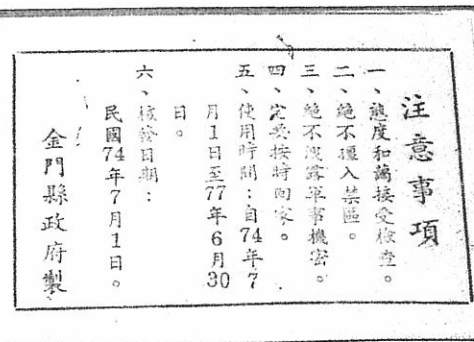 注意事項
一、態度和藹接受檢查。
二、絶不擅入禁區。
三、絶不洩露軍事機密。
四、定要按時回家。
五、使用時間：自74年7
月1日至77年6月30
日。
六、核發日期：
民國74年7月1日。
金門縣政府製